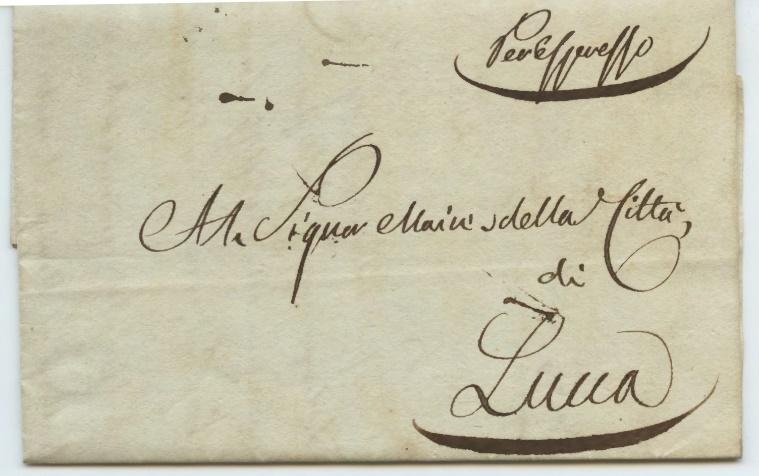 Per Espresso
Al Signor Maire della Città,
di
Lucca